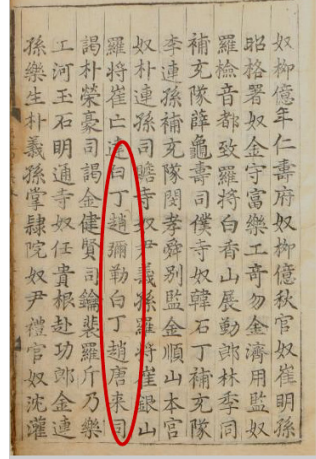 奴柳億年仁壽府奴柳億秋官奴崔明孫
昭格署奴金守富樂工奇勿金濟用監奴
羅檢音都致羅將白香山展動郎林季同
補充隊薛龜壽司僕寺奴韓石丁補充隊
李連孫補充隊閔孝舜別監金順山本宮
奴朴連孫司贍寺奴尹義孫羅將崔銀山
羅將崔亡達白丁趙彌勒白丁趙唐來司
謁朴榮豪司謁金健賢司鑰裴羅斤乃樂
工河玉石明通寺奴任貴根赴功郎金連
孫樂生朴義孫掌隸院奴尹禮官奴沈灌